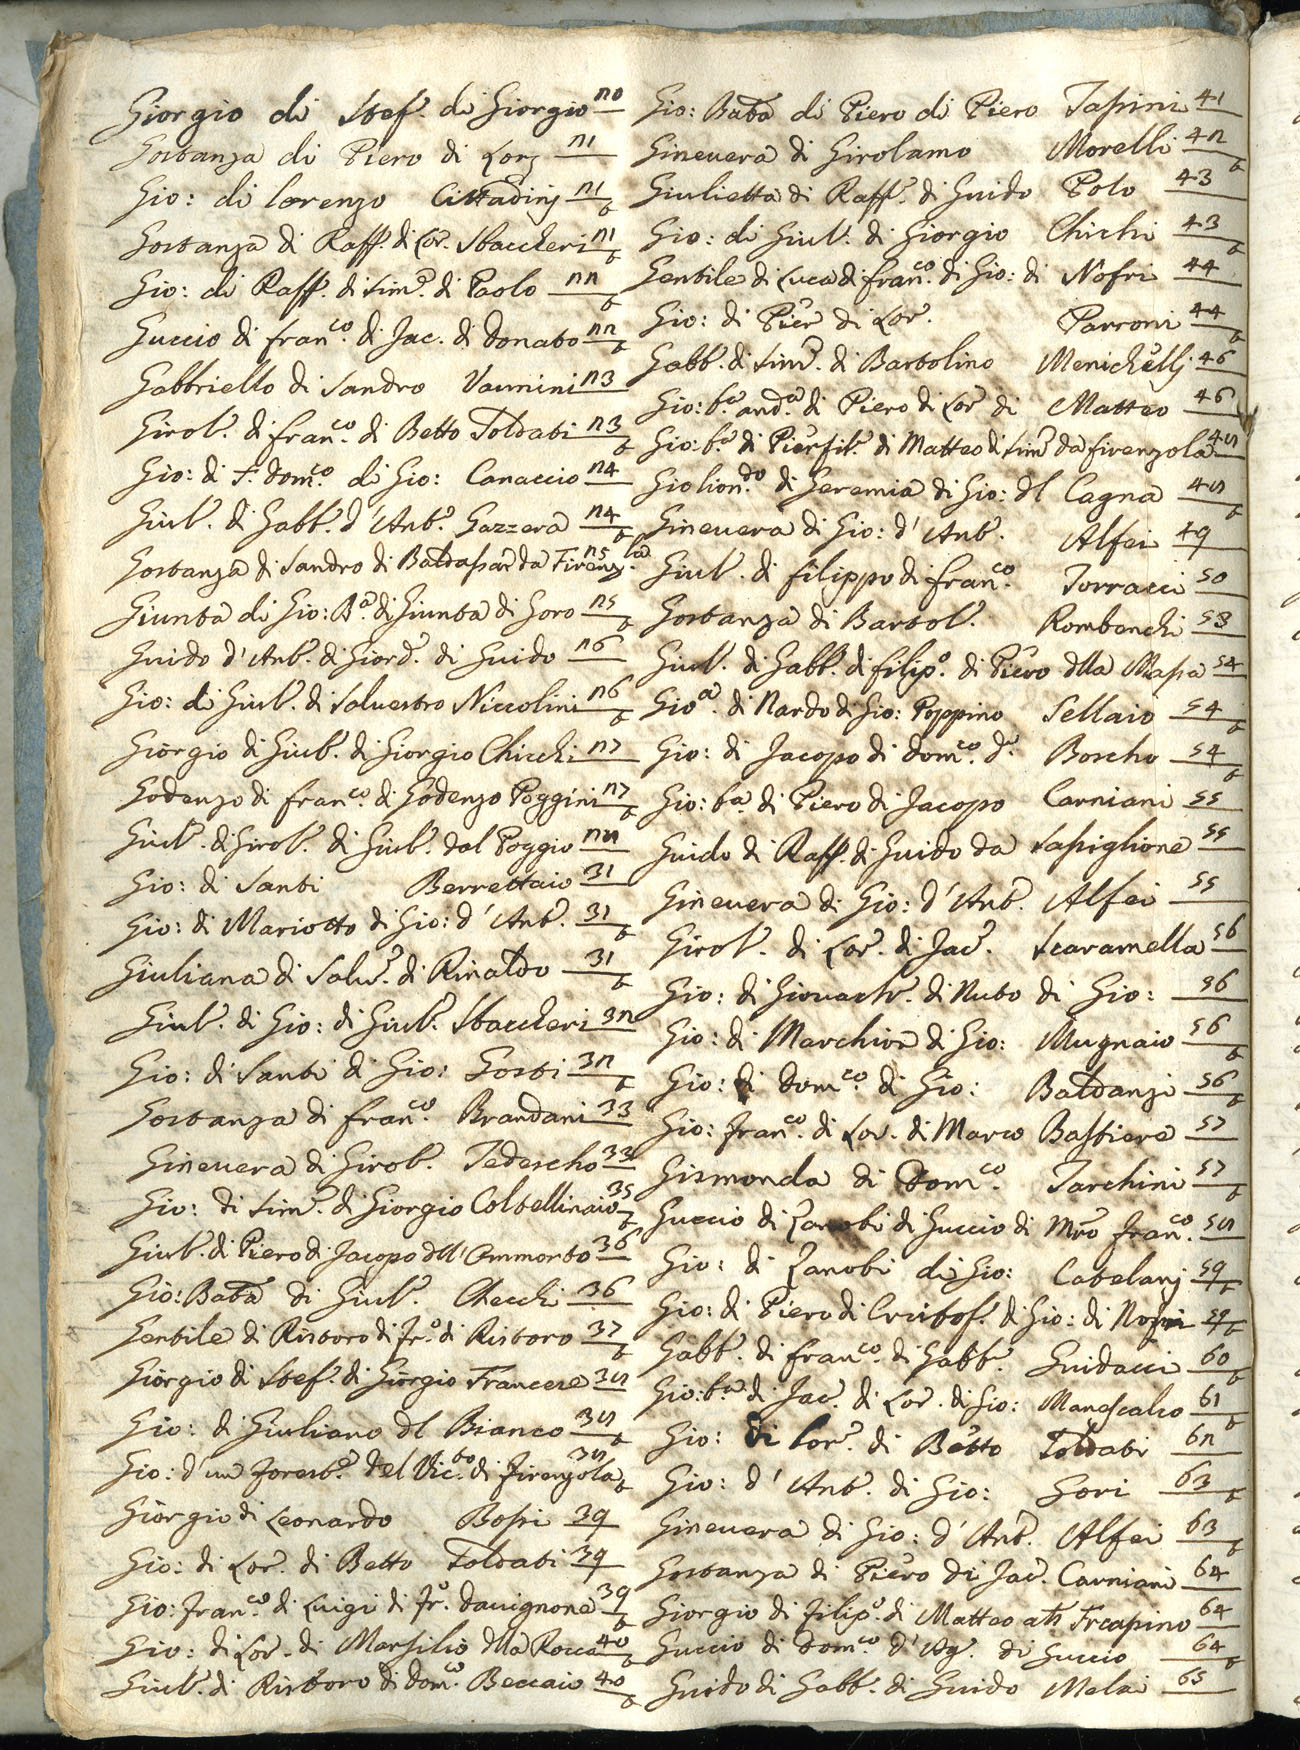 Giorgio di Stef.º di Giorgio 20
Gostanza di Piero di Lorz 21
Gio: di Lorenzo Cittadinj 21 t
Gostanza di Raff.º di Lor.º Staccheri 21 t
Gio: di Raff.º di Sim.º di Paolo 22 t
Guccio di Fran.co di Jac. di Donato 22 t
Gabbriello di Sandro Vannini 23
Girol.º di Fran.co di Betto Toldati 23 t
Gio: di S.r Dom.co di Gio: Canaccio 24
Giul.º di Gabb.º d'Ant.º Gazzera 24 t
Gostanza di Sandro di Baldassar da Firenz.la 25
Giunta di Gio: B.a di Giunta di Goro 25 t
Guido d'Ant.º di Giord.º di Guido 26
Gio: di Giul.º di Salvestro Niccolini 26 t
Giorgio di Giul.º di Giorgio Chicchi 27
Godenzo di Fran.co di Godenzo Poggini 27 t
Giul.º di Girol.º di Giul.º dal Poggio 28
Gio: di Santi Berrettaio 31
Gio: di Mariotto di Gio: d'Ant.º 31 t
Giuliana di Salv.º di Rinaldo 31 t
Giul.º di Gio: di Giul.º Staccheri 32
Gio: di Santi di Gio: Gosti 32 t
Gostanza di Fran.co Brandani 33
Ginevera di Girol.º Tedescho 33 t
Gio: di Sim.º di Giorgio Coltellinaio 35 t
Giul.º di Piero di Jacopo dll'Ommorto 36
Gio: Batta di Giul.º Checchi 36
Gentile di Ristoro di Fr.º di Ristoro 37 t
Giorgio di Stef.º di Giorgio Francese 38
Gio: di Giuliano dl Bianco 38 t
Gio: d'un Forest.º del Vic.to di Firenzola 38 t
Giorgio di Leonardo Bossi 39
Gio: di Lor.º di Betto Toldati 39
Gio: Fran.co di Luigi di Fr.º Davignone 39 t
Gio: di Lor.º di Marsilio dlla Rocca 40 t
Giul.º di Ristoro di Dom.co Beccaio 40 t
Gio: Batta di Piero di Piero Tassini 41
Ginevera di Girolamo Morelli 42 t
Giulietta di Raff.º di Guido Polo 43
Gio: di Giul.º di Giorgio Chichi 43 t
Gentile di Luca di Fran.co di Gio: di Nofri 44
Gio: di Pier di Lor.º Parroni 44 t
Gabb.º di Sim.º di Bartolino Menichellj 46
Gio: b.a And.a di Piero di Lor.º di Matteo 46 t
Gio: b.a di Pier fil.º di Matteo di Sim.º da Firenzola 48
Giolion.do di Geremia di Gio: dl Cagna 48 t
Ginevera di Gio: d'Ant.º Alfei 49
Giul.º di Filippo di Fran.co Torracci 50
Gostanza di Bartol.º Rombenchi 53
Giul.º di Gabb.º di Filip.º di Piero dlla Massa 54
Gio.a di Nardo di Gio: Poppino Sellaio 54 t
Gio: di Jacopo di Dom.co d.º Boscho 54 t
Gio: b.a di Piero di Jacopo Carniani 55
Guido di Raff.º di Guido da Sassiglione 55
Ginevera di Gio: d'Ant.º Alfei 55
Girol.º di Lor.º di Jac.º Scaramella 56
Gio: di Giovach.º di Nuto di Gio: 56
Gio: di Marchion di Gio: Mugnaio 56 t
Gio: di Dom.co di Gio: Baldanzi 56 t
Gio: Fran.co di Lor. di Marco Bastiere 57
Gismonda di Dom.co Tarchini 57 t
Guccio di Zanobi di Guccio di Mro Fran.co 58
Gio: di Zanobi di Gio: Catelanj 59 t
Gio: di Piero di Cristof.º di Gio: di Nofri 59 t
Gabb.º di Fran.co di Gabb.º Guidacci 60 t
Gio: b.a di Jac.º di Lor. di Gio: Manescalco 61 t
Gio: di Lor.º di Betto Toldati 62
Gio: d'Ant.º di Gio: Gori 63 t
Ginevera di Gio: d'Ant.º Alfei 63 t
Gostanza di Piero di Jac.º Carniani 64
Giorgio di Filip.º di Matteo Trespino 64
Guccio di Dom.co d'Ag.º di Guccio 64 t
Guido di Gabb.º di Guido Melai 65